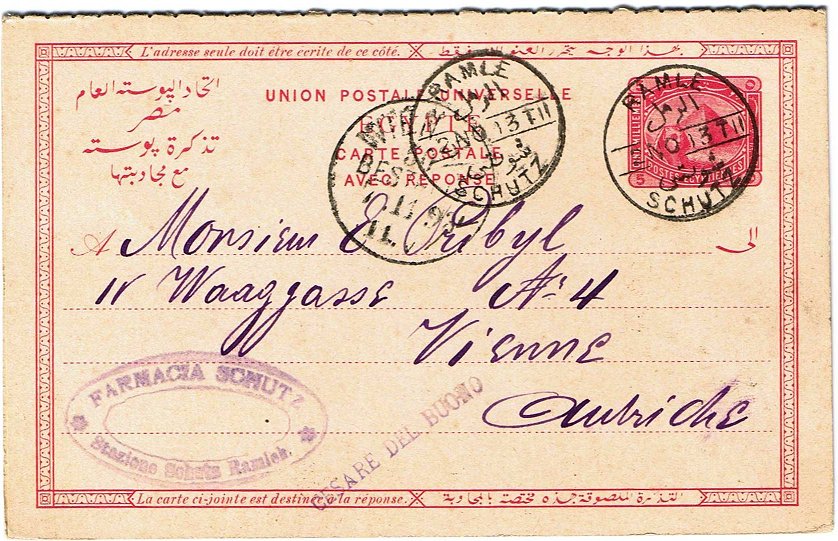 L'adresse seule doit être écrite de ce côté.
بهذا الوجه يتحرر العنوان فقط
اتحاد البوسته العام
مصر
تذكرة بوسته
مع مجاوبتها
UNION POSTALE UNIVERSELLE
EGYPTE
CARTE POSTALE
AVEC RÉPONSE
RAMLE
الرمل
2 N 0 13 T II
SCHUTZ
WIEN
RAMLE
الرمل
2 N 0 13 T II
SCHUTZ
5
POSTES EGYPTIENNES
A Monsieur E Pribyl
الى
IV Waaggasse No 4
Vienne
Autriche
FARMACIA SCHUTZ
Stazione Schutz Ramleh.
CESARE DEL BUONO
La carte ci-jointe est destinée à la réponse.
التذكرة الملصوقة بهذه مختصة بالمجاوبة